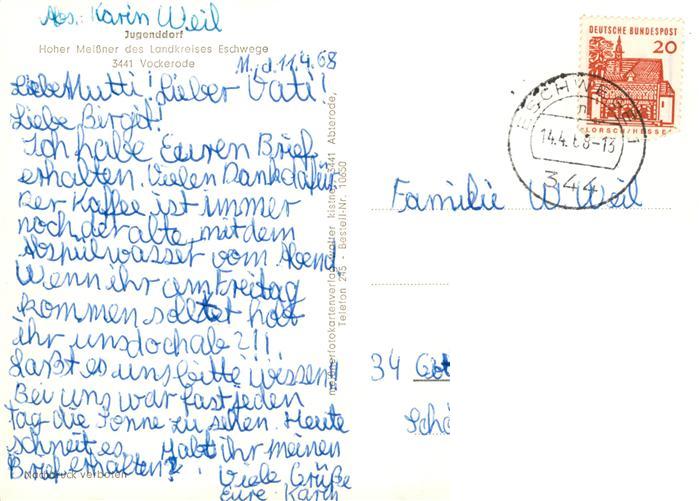 Abs.: Karin Weil
Jugenddorf
Hoher Meißner des Landkreises Eschwege
3441 Vockerode
M., d. 11.4.68
Liebe Mutti! Lieber Vati!
Liebe Birgit!
Ich habe Eueren Brief
erhalten. Vielen Dank dafür
Der Kaffee ist immer
noch der alte, mit dem
Abspülwasser vom Abend.
Wenn ihr am Freitag
kommen solltet holt
ihr uns doch ab?!!
Laßt es uns bitte wissen!
Bei uns war fast jeden
tag die Sonne zu sehen. Heute
schneit es. Habt ihr meinen
Brief erhalten?
Viele Grüße
Eure Karin
Nachdruck verboten
walter kistner, 3441 Abterode,
Telefon 245 - Bestell-Nr. 10650
DEUTSCHE BUNDESPOST
20
LORSCH/HESSEN
ESCHWEGE 1
14.4.68-13
344
Familie W. Weil
34 Göt
Schö